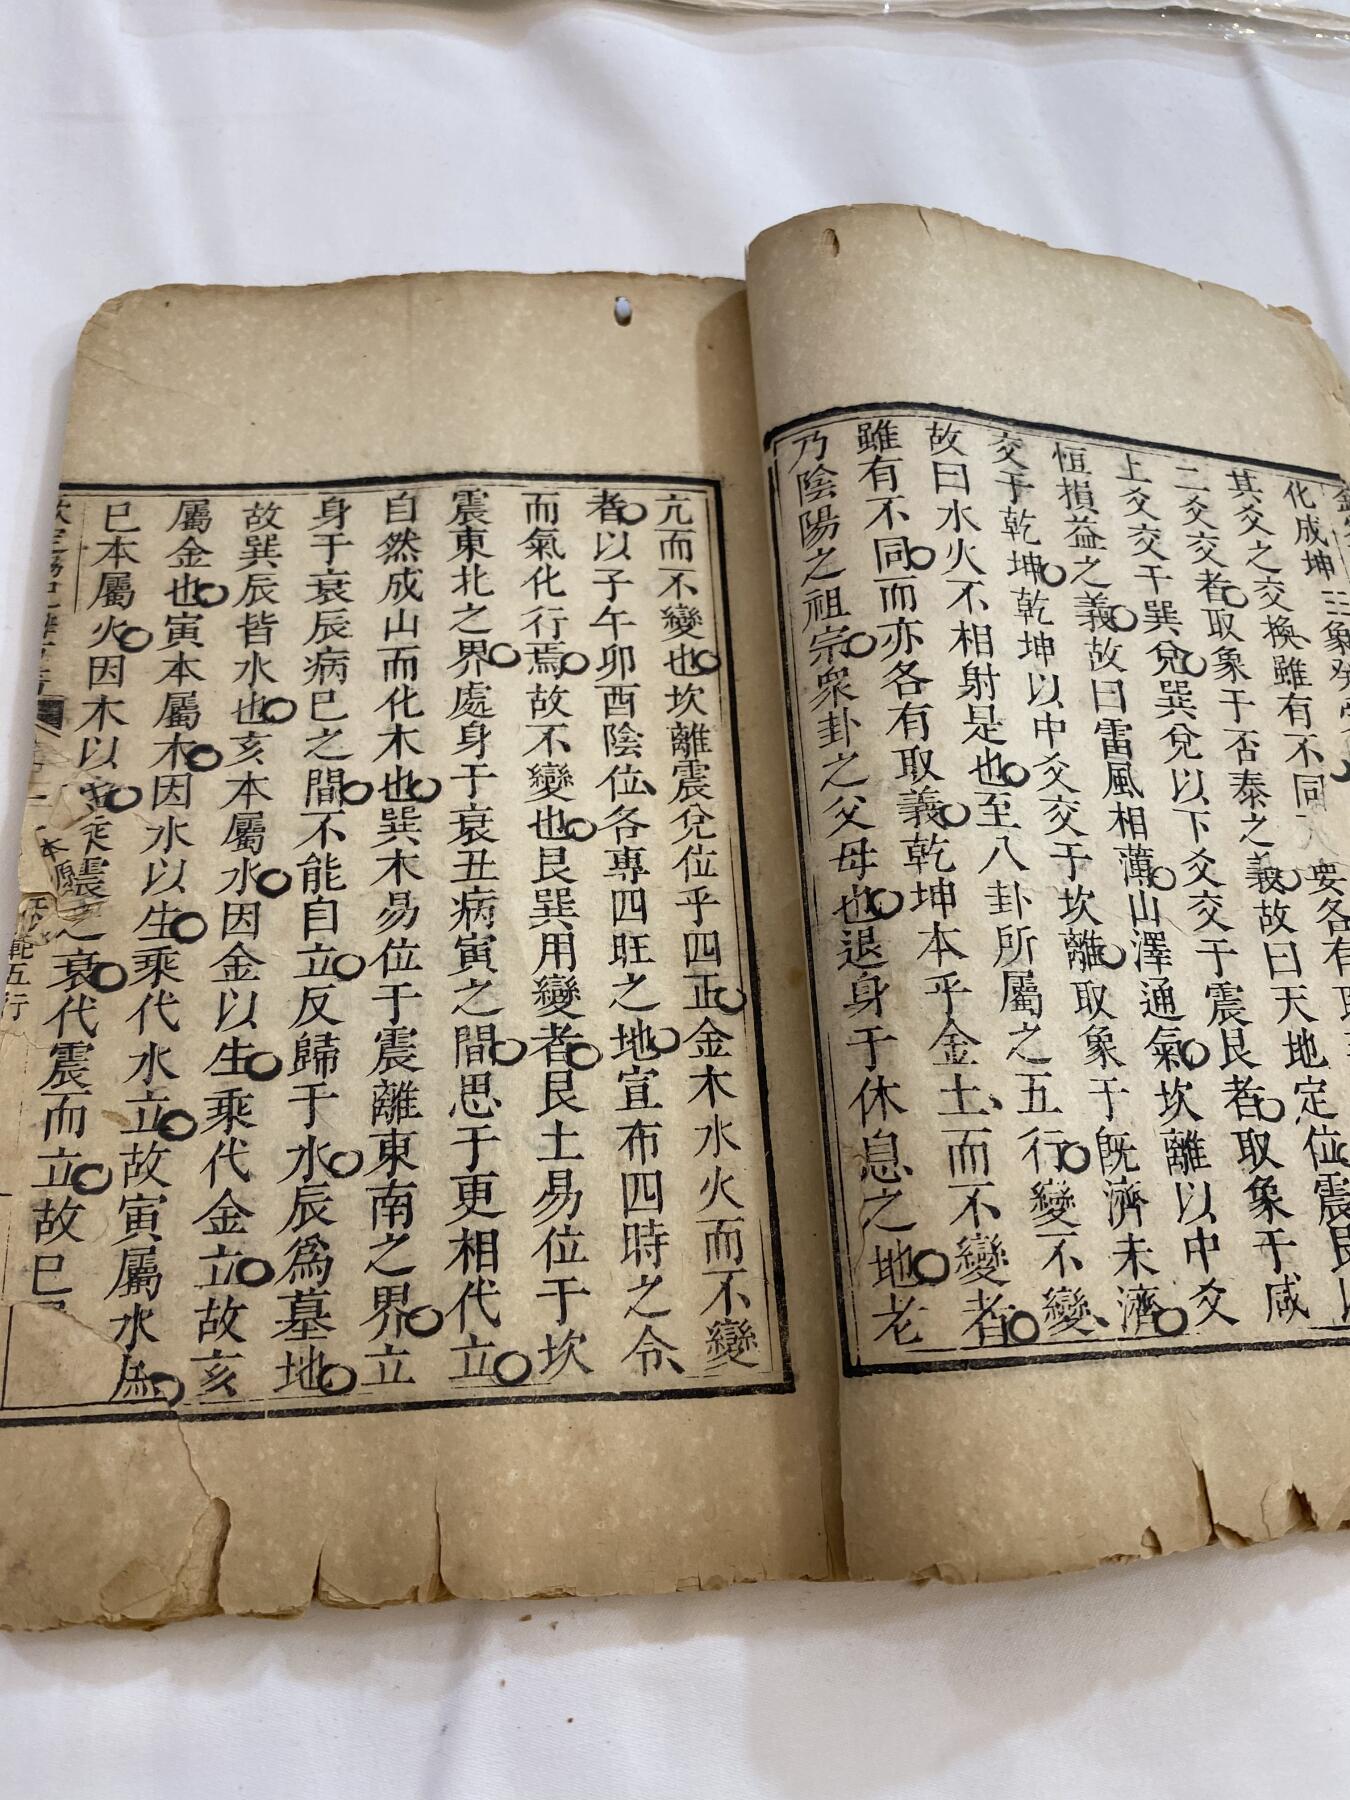 化成坤三象
其爻之交換雖有不同
二爻交者取象于否泰之義故曰天地定位震艮
上爻交于巽兌巽兌以下爻交于震艮者取象于咸
恒損益之義故曰雷風相薄山澤通氣坎離以中爻
交于乾坤乾坤以中爻交于坎離取象于旣濟未濟
故曰水火不相射是也至八卦所屬之五行變不變
雖有不同而亦各有取義乾坤本乎金土而不變者
乃陰陽之祖宗眾卦之父母也退身于休息之地老
亢而不變也坎離震兌位乎四正金木水火而不變
者以子午卯酉陰位各專四旺之地宣布四時之令
而氣化行焉故不變也艮巽用變者艮土易位于坎
震東北之界處身于衰丑病寅之間思于更相代立
自然成山而化木也巽木易位于震離東南之界立
身于衰辰病巳之間不能自立反歸于水辰爲墓地
故巽辰皆水也亥本屬水因金以生乘代金立故亥
屬金也寅本屬木因水以生乘代水立故寅屬水爲
巳本屬火因木以 震之衰代震而立故巳
本原 範五行